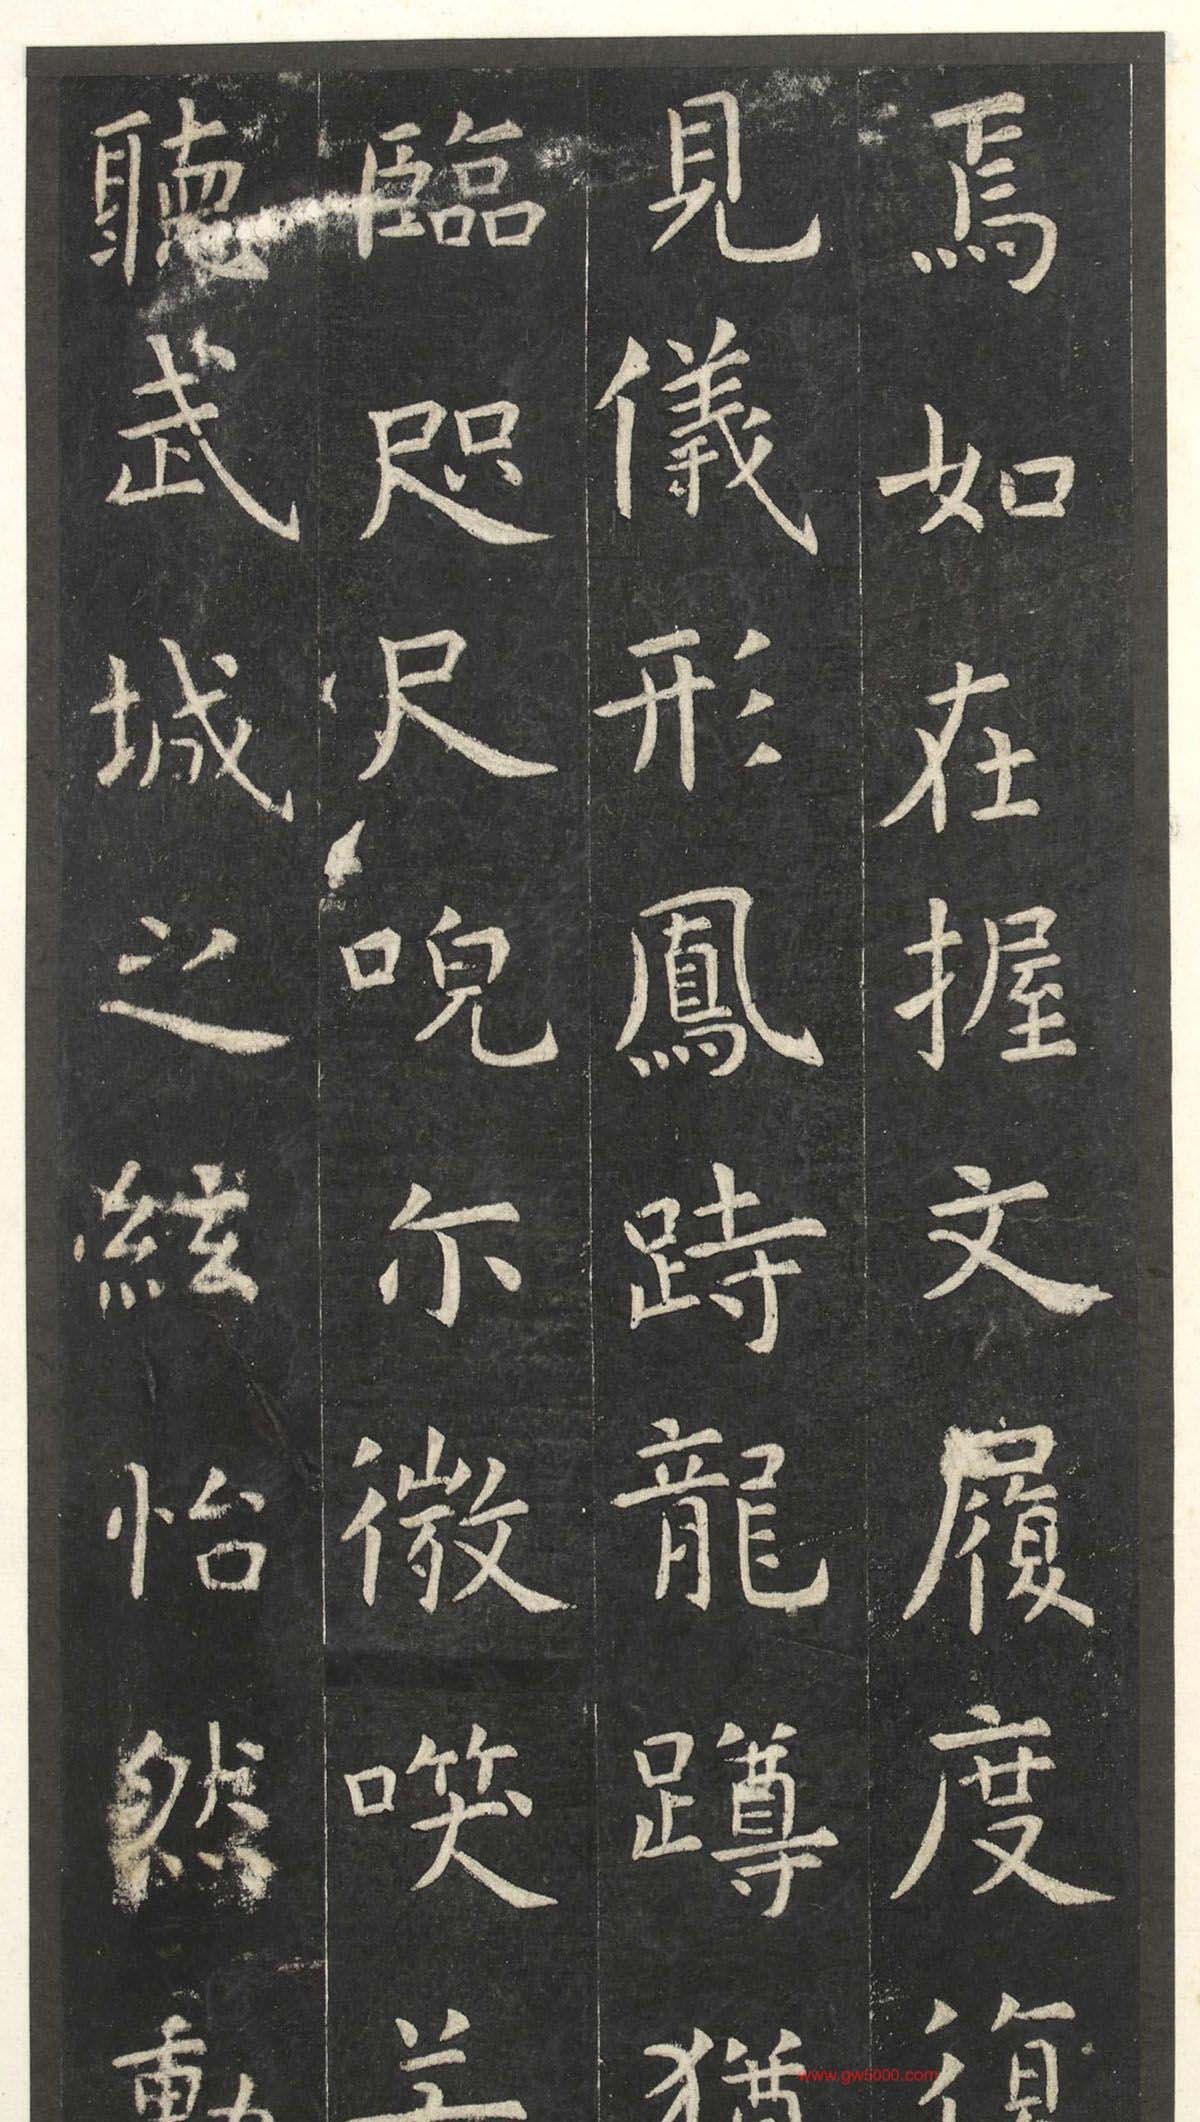 焉如在握文履度復
見儀形鳳跱龍蹲猶
臨咫尺唲尓微噗若
聽武城之絃怡然動
www.gw5000.com